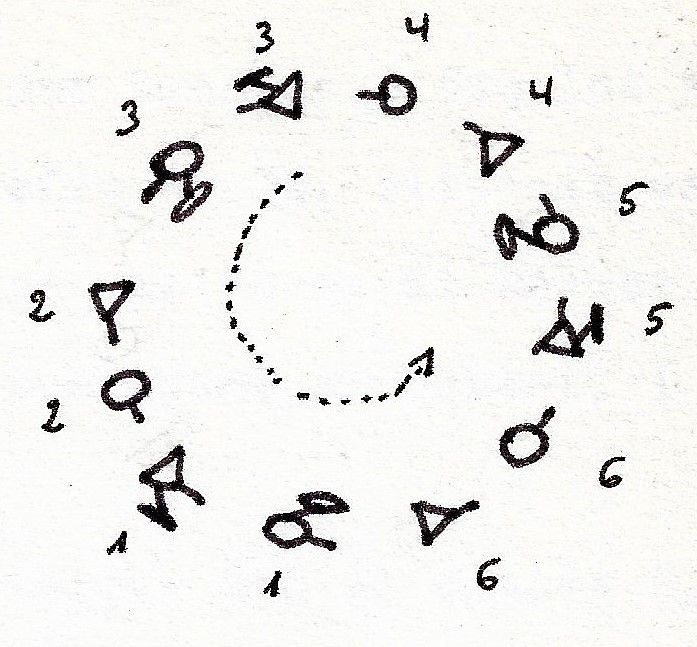 3
4
3
4
5
2
5
2
6
1
1
6